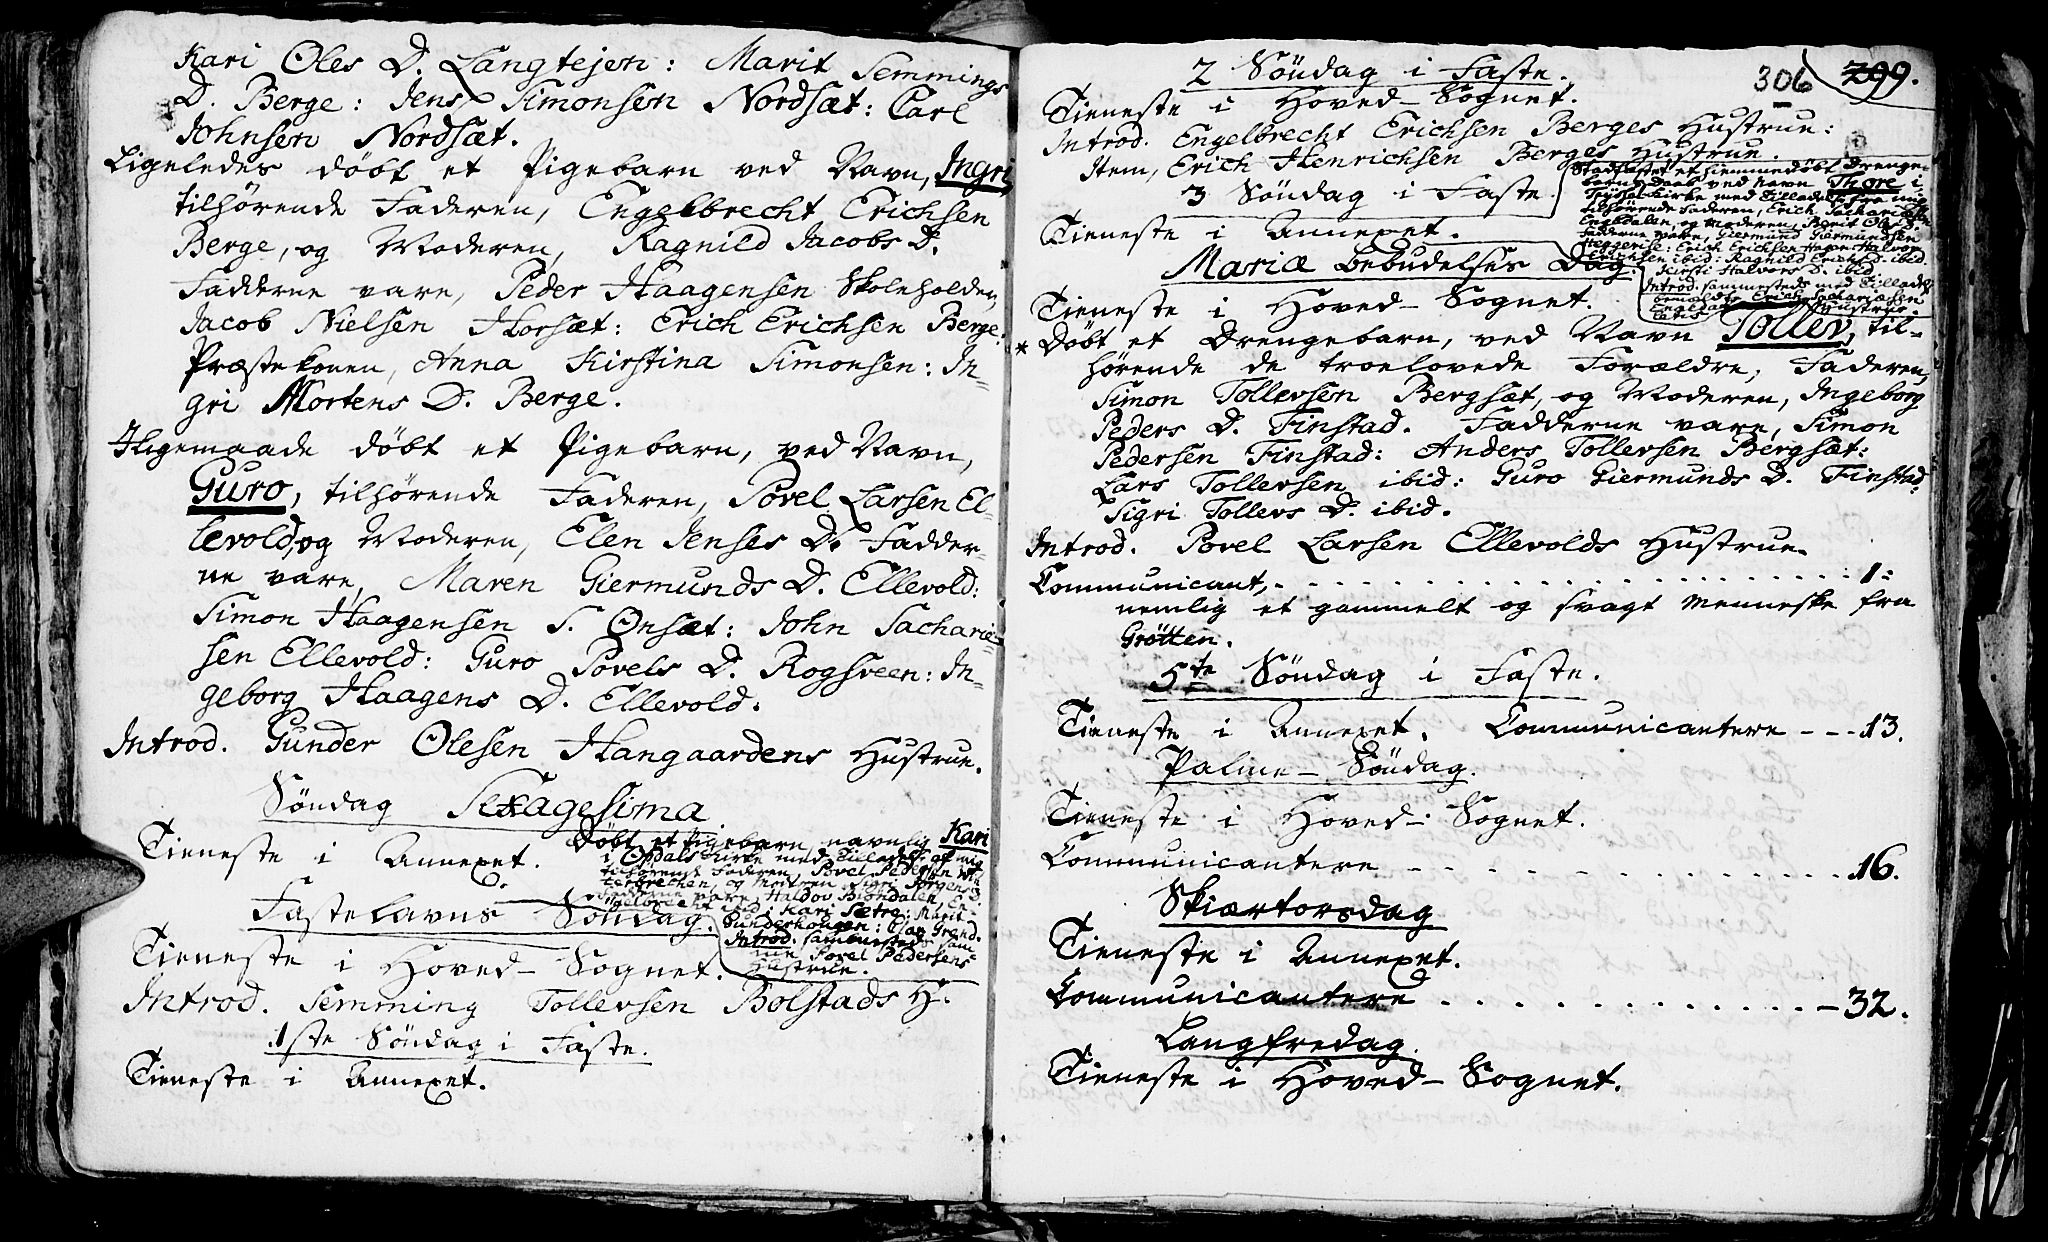 Kari Oles D. Langtejen: Marit Semmings
D. Berge: Jens Simonsen Nordsæt: Carl
Johnsen Nordsæt.
Ligeledes døbt et Pigebarn ved Navn, Ingri,
tilhørende Faderen, Engelbrecht Erichsen
Berge, og Moderen, Ragnild Jacobs D.
Fadderne vare, Peder Haagensen Skoleholder,
Jacob Nielsen Horsæt: Erich Erichsen Berge:
Præstekonen, Anna Kirstina Simonsen: In-
gri Mortens D. Berge.
Iligemaade døbt et Pigebarn, ved Navn,
Guro, tilhørende Faderen, Povel Larsen El-
levold, og Moderen, Elen Jenses D. Fadder-
ne vare, Maren Giermunds D. Ellevold:
Simon Haagensen S. Onsæt: John Sacharie-
sen Ellevold: Guro Povels D. Rogsveen: In-
geborg Haagens D. Ellevold.
Introd. Gunder Olesen Hangaardens Hustrue.
Søndag Sexagesima
Tieneste i Annexet.
Døbt et Pigebarn navnlig Kari
i Opdals Kirke med Tilladelse af mig
tilhørende Faderen, Povel Pedersen
terbrechen, og Moderen Sigri Jørgens D.
Fadderne vare, Haldov Biøndalen, En-
gelbrecht ibid: Kari Sætre: Marit
Gunderhougen: Elan Grend.
Introd. sammesteds sam-
me Povel Pedersens
Hustrue.
Fastelavns Søndag.
Tieneste i Hoved-Sognet.
Introd. Semming Tollevsen Bolstads H.
1ste Søndag i Faste.
Tieneste i Annexet.
306 299.
2 Søndag i Faste.
Tieneste i Hoved-Sognet.
Introd. Engelbrecht Erichsen Berges Hustrue:
Item, Erich Henrichsen Berges Hustrue.
3 Søndag i Faste.
Tieneste i Annexet.
Stadfæstet et hiemmedøbt Drenge-
barns Daab ved Navn Thore i
Kirke med Tilladelse fra mig
tilhørende Faderen, Erich Sachariæsen
Engeldalen, og Moderen, Marit Ols D.
Fadderne vare, Giermund Giermundsen
Heggerise: Erich Erichsen Halvor
Erichsen ibid: Ragnild Erichs D. ibid.
Kirsti Halvors D. ibid.
Introd. sammesteds med Tilladelse
bemaldte Erich Sachariæsen
Hustrue.
Mariæ Bebudelses Dag.
Tieneste i Hoved-Sognet.
* Døbt et Drengebarn, ved Navn Tollev, til-
hørende de troelovede Forældre, Faderen,
Simon Tollevsen Bergsæt, og Moderen, Ingeborg
Peders D. Finstad. Fadderne vare, Simon
Pedersen Finstad: Anders Tollevsen Bergsæt:
Lars Tollevsen ibid: Guro Giermunds D. Finstad:
Sigri Tollevs D. ibid.
Introd. Povel Larsen Ellevolds Hustrue.
Communicant, . . . . . . . . . . 1:
nemlig et gammelt og svagt Menneske fra
Grøtten.
5te Søndag i Faste.
Tieneste i Annexet. Communicantere - - - 13.
Palme-Søndag.
Tieneste i Hoved-Sognet.
Communicantere . . . . . . . . . . 16.
Skiærtorsdag
Tieneste i Annexet.
Communicantere . . . . . . . . . . 32.
Langfredag.
Tieneste i Hoved-Sognet.